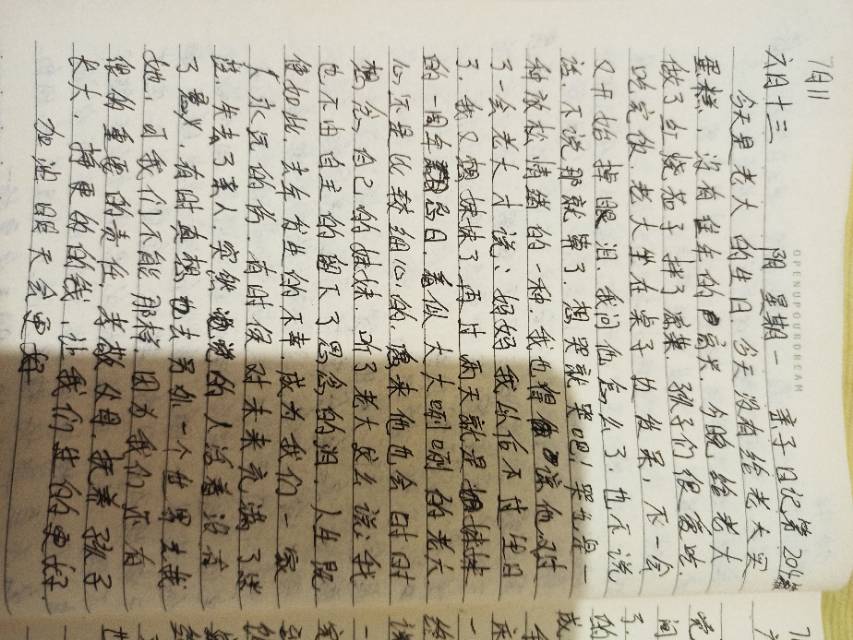 7月11
六月十三 阴 星期一 亲子日记第204篇
OPENUPYOURDREAM
今天是老大的生日,今天没有给老大买
蛋糕,没有往年的高兴,今晚给老大
做了红烧茄子拌了凉菜,孩子们很爱吃,
吃完饭,老大坐在桌子边发呆,不一会
又开始掉眼泪,我问他怎么了,也不说
话,不说那就算了,想哭就哭吧!哭也是一
种放松情绪的一种,我也
了一会老大才说:妈妈我以后不过生日
了,我又想妹妹了,再过两天就是妹妹
的一周年忌日,看似大大咧咧的老大
心不是比较细心的,原来他也会时时
想念自己的妹妹,听了老大这么说:我
也不由自主的留下了思念的泪,人生既
便如此,去年发生的不幸,成为我们一家
人永远的伤,有时候对未来充满了迷
茫,失去了亲人,突然的人活着没有
了意义,有时真想也去另外一个世界去找
她,可我们不能那样,因为我们还有
很多重要的责任,孝敬父母,抚养孩子
长大,挣更的的钱,让我们生的更好
加油明天会更好